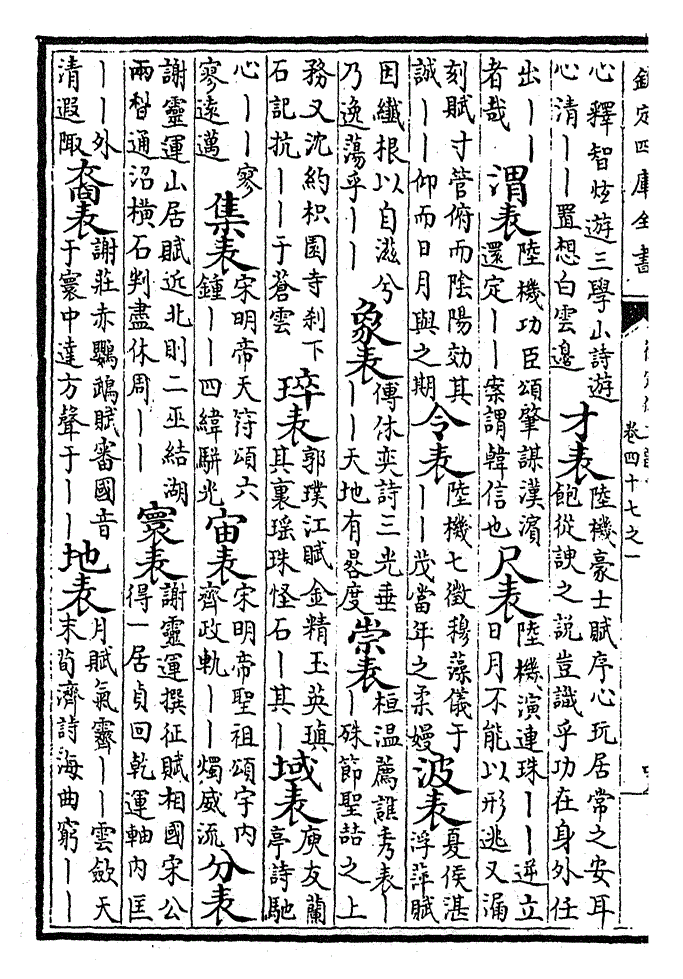 欽定四庫全書
卷四十七之一
心釋智炫遊三學山詩遊
心清丨丨置想白雲邊
才表
陸機豪士賦序心玩居常之安耳
飽從諛之說豈識乎功在身外任
出丨丨
者哉
渭表
陸機功臣頌肇謀漢濱
還定丨丨案謂韓信也
尺表
陸機演連珠丨丨逆立
日月不能以形逃又漏
刻賦寸管俯而陰陽効其
誠丨丨仰而日月與之期
令表
陸機七徵穆藻儀于
丨丨茂當年之柔嫚
波表
夏侯湛
浮萍賦
因纖根以自滋兮
乃逸蕩乎丨丨
象表
傅休奕詩三光垂
丨丨天地有晷度
崇表
桓温薦譙秀表丨
丨殊節聖喆之上
務又沈約枳園寺刹下
石記抗丨丨于蒼雲
琗表
郭璞江賦金精玉英瑱
其裏瑶珠怪石丨其丨
域表
庾友蘭
亭詩馳
心丨丨寥
寥遠邁
集表
宋明帝天符頌六
鍾丨丨四緯駢光
宙表
宋明帝聖祖頌宇内
齊政軌丨丨燭威流
分表
謝靈運山居賦近北則二巫結湖
兩㫼通沼橫石判盡休周丨丨
寰表
謝靈運撰征賦相國宋公
得一居貞回乾運軸内匡
丨丨外
清遐陬
裔表
謝莊赤鸚鵡賦審國音
于寰中達方聲于丨丨
地表
月賦氣霽丨丨雲斂天
末荀濟詩海曲窮丨丨